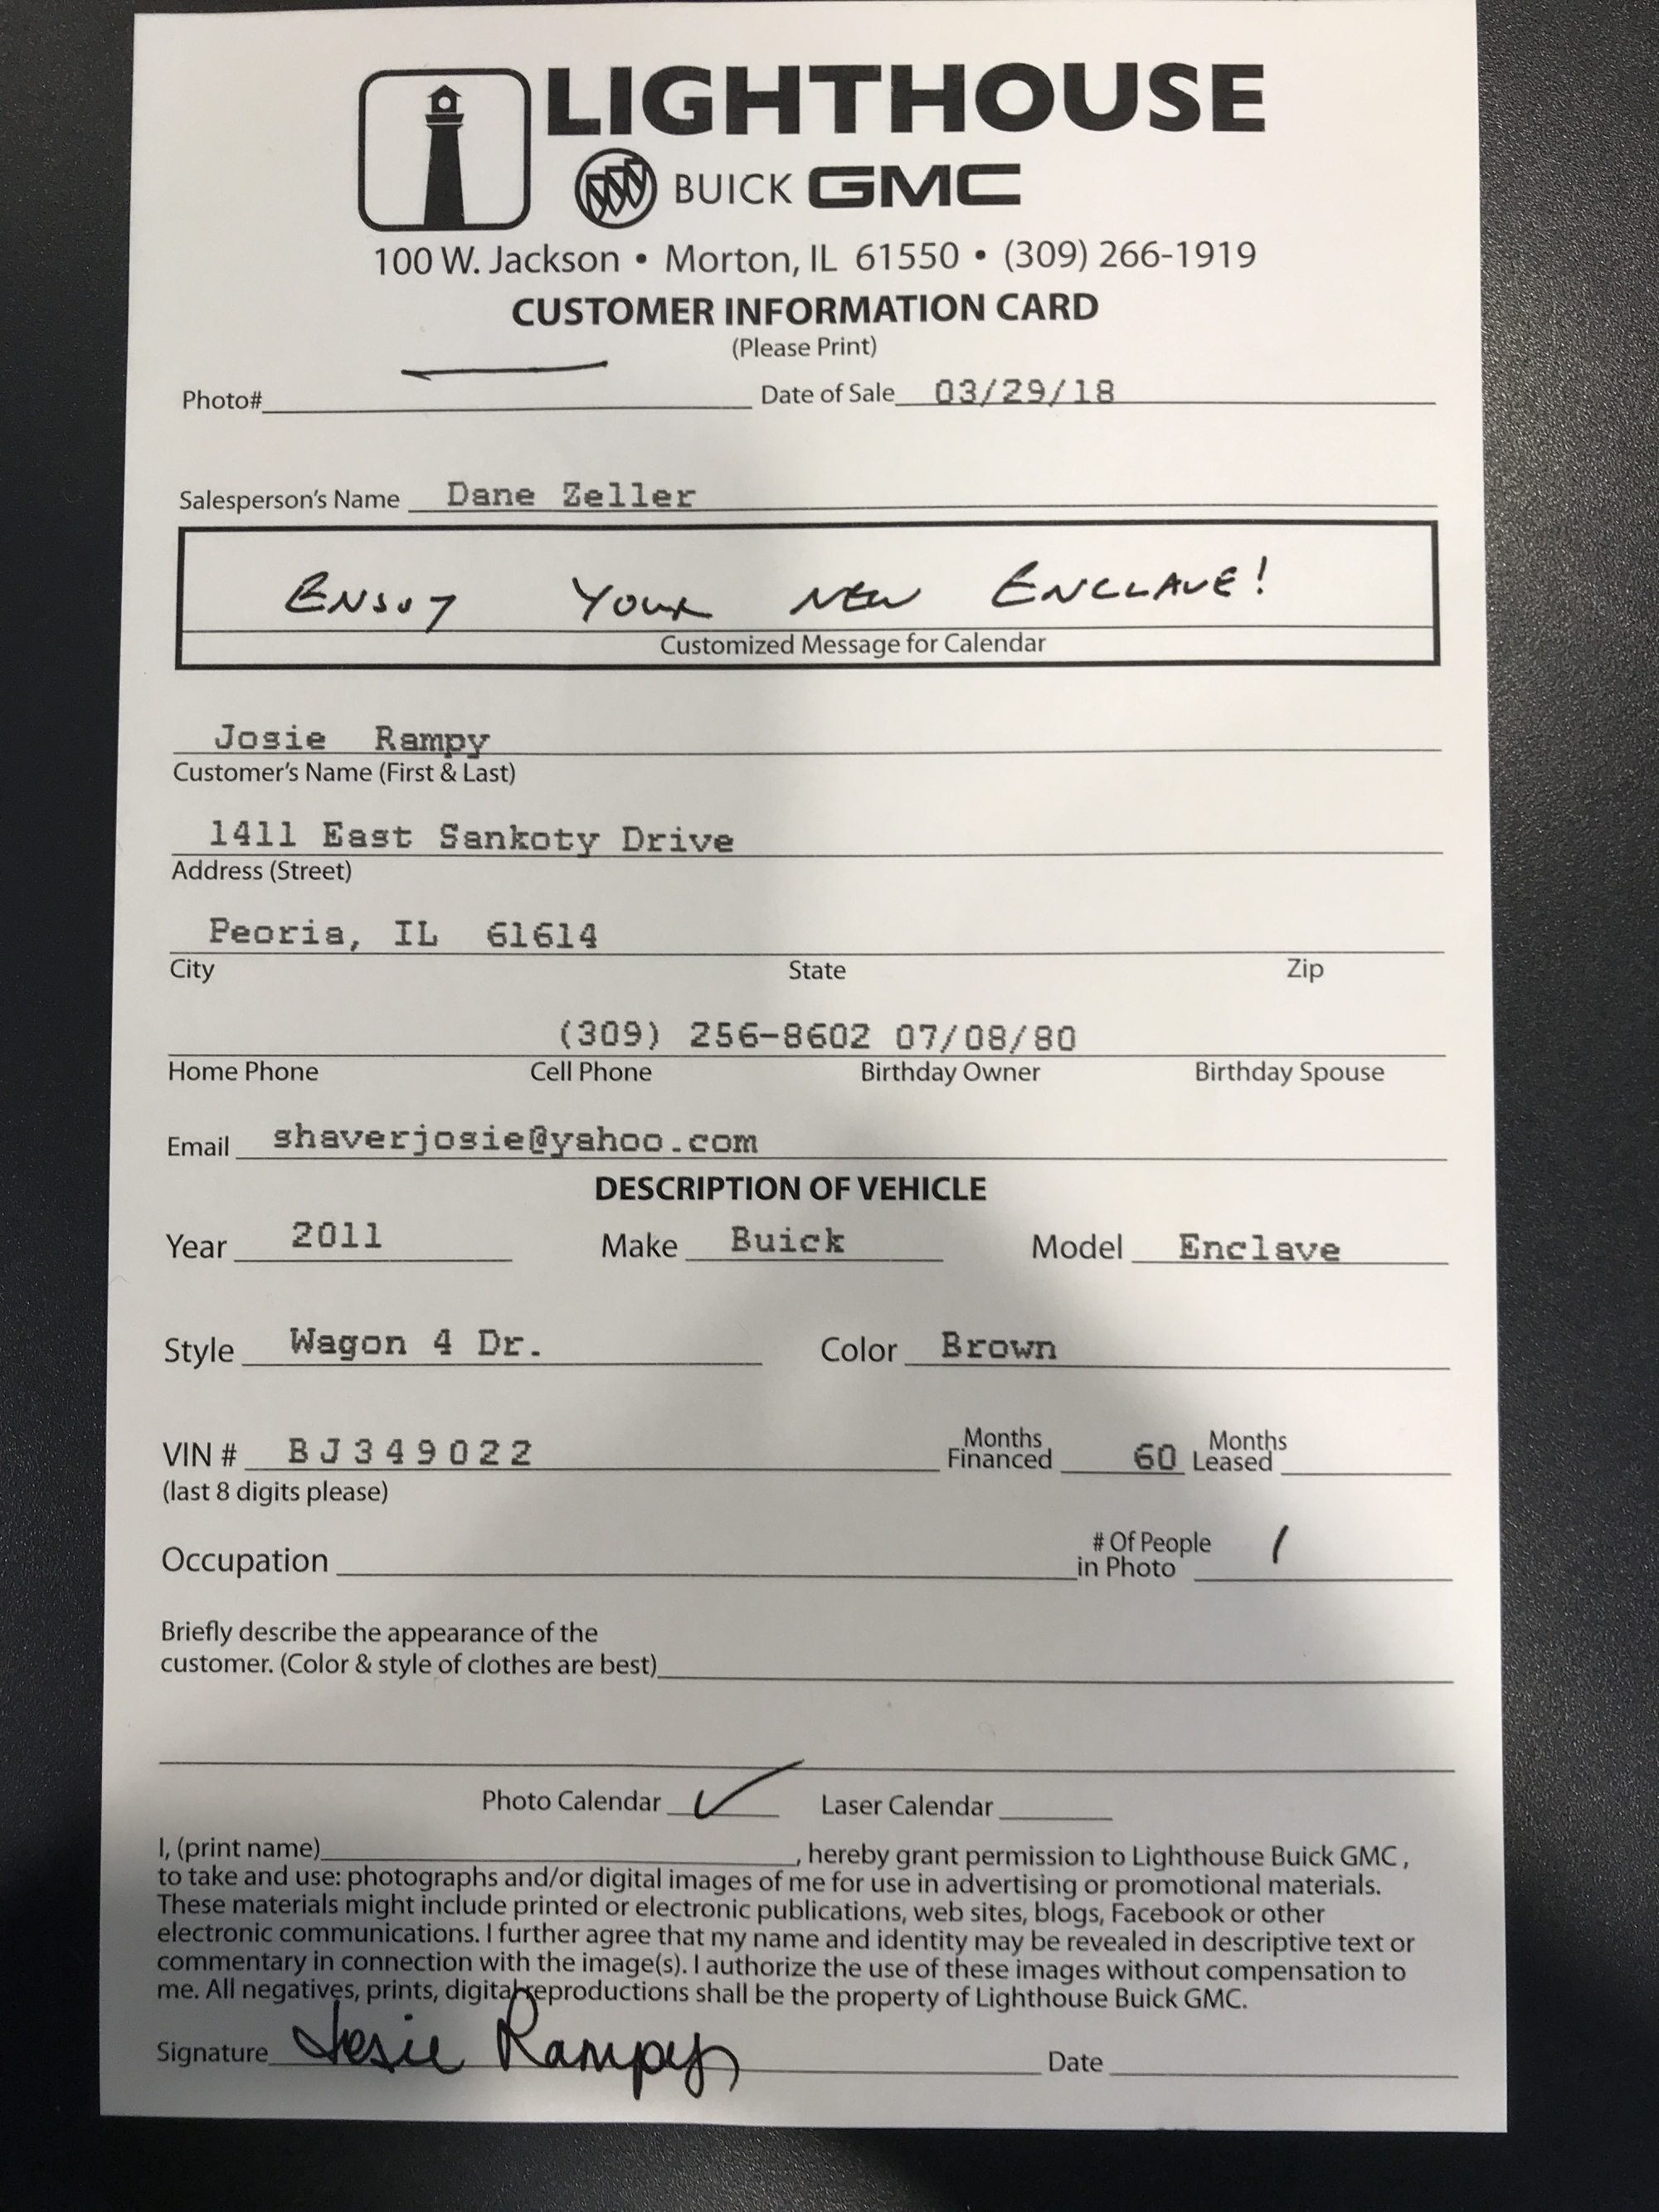 LIGHTHOUSE
BUICK GMC
100 W. Jackson • Morton, IL 61550 • (309) 266-1919
CUSTOMER INFORMATION CARD
(Please Print)
Photo# Date of Sale 03/29/18
Salesperson's Name Dane Zeller
ENJOY YOUR NEW ENCLAVE!
Customized Message for Calendar
Josie Rampy
Customer's Name (First & Last)
1411 East Sankoty Drive
Address (Street)
Peoria, IL 61614
City State Zip
(309) 256-8602 07/08/80
Home Phone Cell Phone Birthday Owner Birthday Spouse
Email shaverjosie@yahoo.com
DESCRIPTION OF VEHICLE
Year 2011 Make Buick Model Enclave
Style Wagon 4 Dr. Color Brown
VIN # BJ349022 Months Financed 60 Months Leased
(last 8 digits please)
Occupation # Of People in Photo 1
Briefly describe the appearance of the
customer. (Color & style of clothes are best)
Photo Calendar ✓ Laser Calendar
I, (print name) , hereby grant permission to Lighthouse Buick GMC,
to take and use: photographs and/or digital images of me for use in advertising or promotional materials.
These materials might include printed or electronic publications, web sites, blogs, Facebook or other
electronic communications. I further agree that my name and identity may be revealed in descriptive text or
commentary in connection with the image(s). I authorize the use of these images without compensation to
me. All negatives, prints, digital reproductions shall be the property of Lighthouse Buick GMC.
Signature Josie Rampy Date